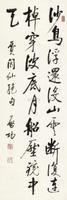 沙鳥浮還沒山雲斷復連
棹穿波底月船壓中
天 賈閬仙 句 啟功